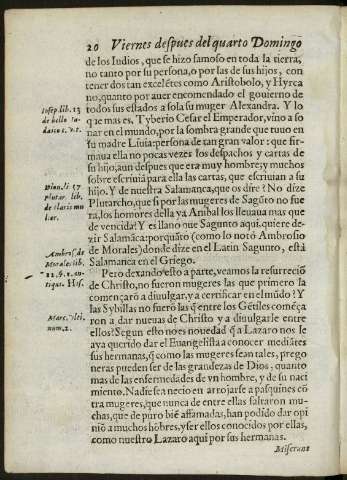 20 Viernes despues del quarto Domingo
de los Iudios, que se hizo famoso en toda la tierra,
no tanto por su persona, o por las de sus hijos, con
tener dos tan excelẽtes como Aristobolo, y Hyrca
no, quanto por auer encomendado el gouierno de
todos sus estados a sola su muger Alexandra. Y lo
que mas es, Tyberio Cesar el Emperador, vino a so
nar en el mundo, por la sombra grande que tuuo en
su madre Liuia: persona de tan gran valor: que fir-
maua ella no pocas vezes los despachos y cartas de
su hijo, aun despues que era muy hombre; y muchos
sobre escriuiã para ella las cartas, que escriuian a su
hijo. Y de nuestra Salamãca, que os dire? No dize
Plutarcho, que si por las mugeres de Sagũto no fue
ra, los homores della ya Anibal los lleuaua mas que
de vencida? Y es llano que Sagunto aqui, quiere de-
zir Salamãca: porquãto (como lo notò Ambrosio
de Morales) donde dize en el Latin Sagunto, està
Salamanca en el Griego.
Pero dexando esto a parte, veamos la resurreciõ
de Christo, no fueron mugeres las que primero la
començarõ a diuulgar, y a certificar en el mũdo? Y
las Sybillas no fuerõ las q̃ entre los Gẽtiles começa
ron a dar nueuas de Christo y a diuulgarle entre
ellos? Segun esto no es nouedad q̃ a Lazaro nos le
aya querido dar el Euangelista a conocer mediãtes
sus hermanas, q̃ como las mugeres sean tales, prego
neras pueden ser de las grandezas de Dios, quanto
mas de las enfermedades de vn hombre, y de su naci
miento. Nadie sea necio en arrojarse a pasquines cõ
tra mugeres, que nunca de entre ellas faltaron mu-
chas, que de puro biẽ affamadas, han podido dar opi
niõ a muchos hõbres, y ser ellos conocidos por ellas,
como nuestro Lazaro aqui por sus hermanas.
Miserunt
Iosep. lib. 13
de bello Iu-
daico c.
Plutar. lib.
de claris mu
lier.
Ambros. de
Morales lib.
His.
num. 2.